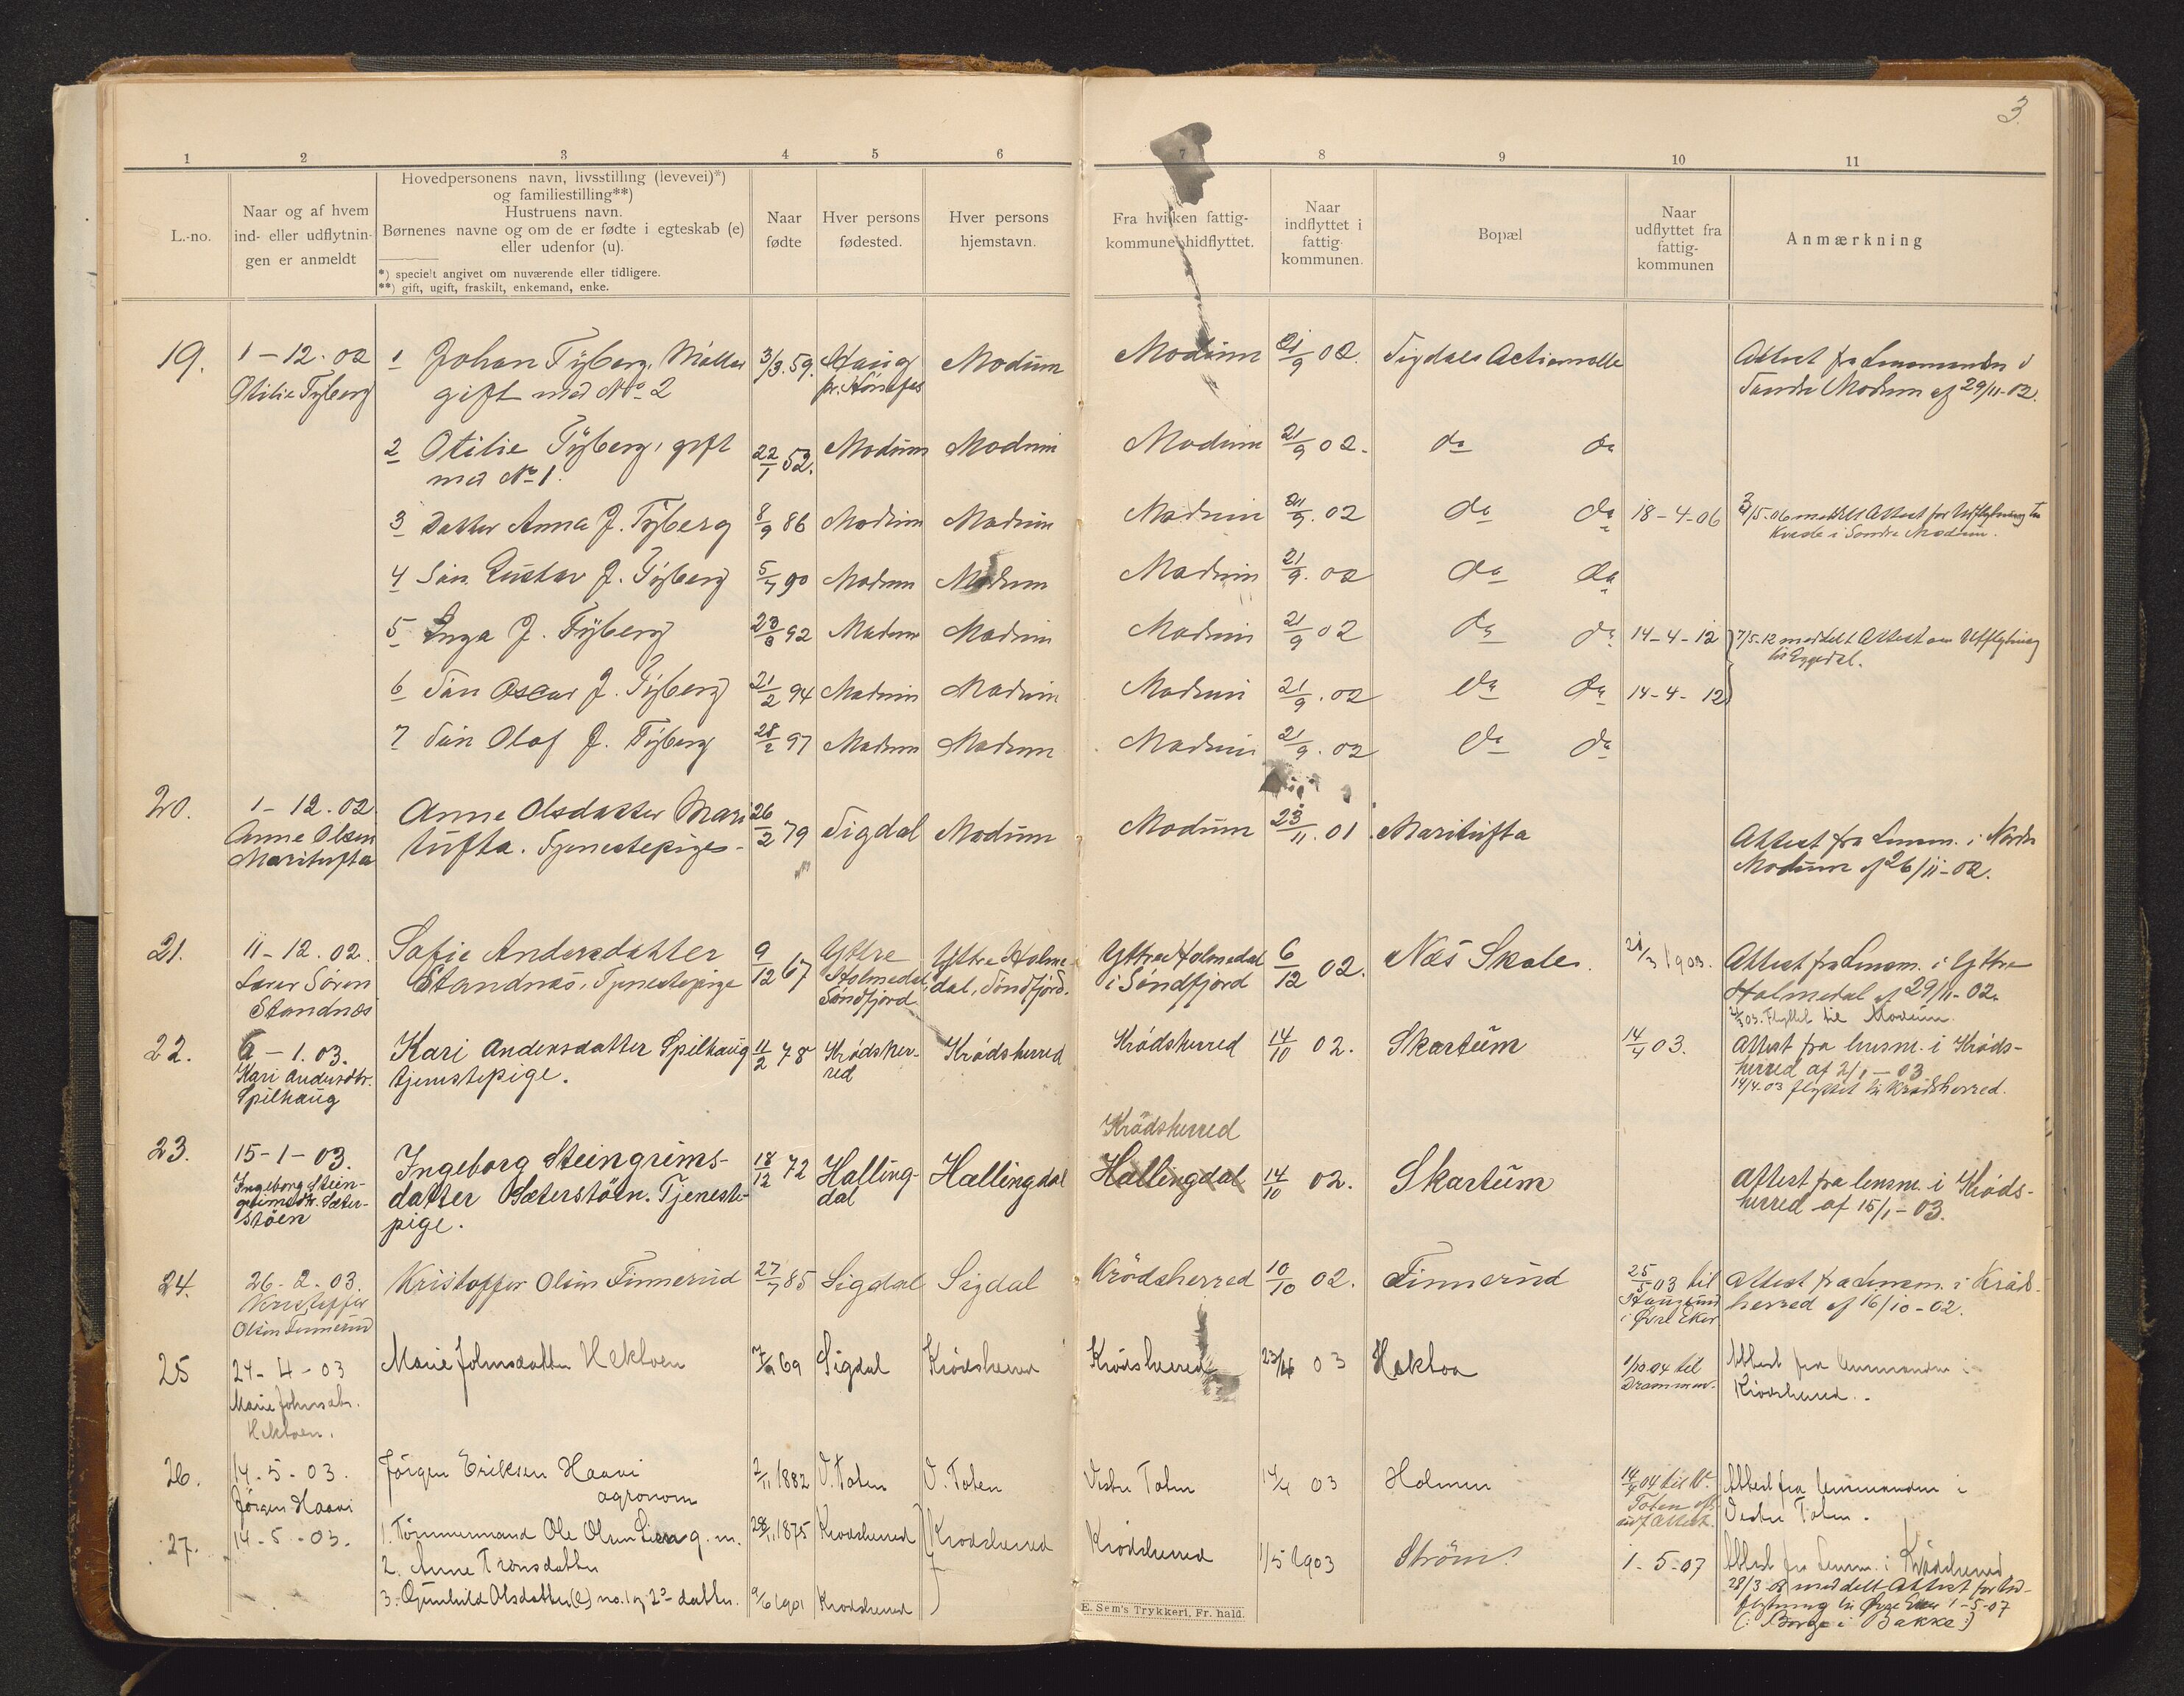 3
1 2 3 4 5 6 7 8 9 10 11
L.-no.
Naar og af hvem
ind- eller udflytnin-
gen er anmeldt
Hovedpersonens navn, livsstilling (levevei)*)
og familiestilling**)
Hustruens navn.
Børnenes navne og om de er fødte i egteskab (e)
eller udenfor (u).
*) specielt angivet om nuværende eller tidligere.
**) gift, ugift, fraskilt, enkemand, enke.
Naar
fødte
Hver persons
fødested.
Hver persons
hjemstavn.
Fra hvilken fattig-
kommune hidflyttet.
Naar
indflyttet i
fattig-
kommunen.
Bopæl
Naar
udflyttet fra
fattig-
kommunen
Anmærkning
19. 1-12-02 1 Johan Tÿberg, Møller 3/3. 59. Haug Modum Modum 21/9 02. Sigdals Actiemølle Attest fra Lensmanden i
Otilie Tÿberg gift med No 2 pr. Hønefos Søndre Modum af 29/11-02.
2 Otilie Tÿberg, gift 22/1 52. Modum Modum Modum 21/9 02. do do
med No 1.
3 Datter Anna J. Tÿberg 8/9 86 Modum Modum Modum 21/9. 02 do do 18-4-06 3/5-06 meddelt Attest for Udflytning til
i Søndre Modum.
4 Søn Gustav J. Tÿberg 5/7 90 Modum Modum Modum 21/9. 02 do do
5 Inga J. Tÿberg 23/8 92 Modum Modum Modum 21/9 02 do do 14-4-12 7/5-12 meddelt Attest om Udflytning
til Eggedal.
6 Søn Oscar J. Tÿberg 21/2 94 Modum Modum Modum 21/9. 02 do do 14-4-12
7 Søn Olaf J. Tÿberg 28/2 97 Modum Modum Modum 21/9. 02 do do
20. 1-12-02 Anne Olsdatter Mari 26/2 79 Sigdal Modum Modum 23/11. 01 Maritufta Attest fra Lensm. i Nordre
Anne Olsen tufta. Tjenestepige Modum af 26/11-02.
Maritufta
21. 11-12-02. Sofie Andersdatter 9/12 67 Yttre Yttre Holme Yttre Holmedal 6/12 02. Næs Skole. 21/3 1903. Attest fra Lensm. i Yttre
Lærer Søren Standnæs, Tjenestepige Holmedal dal, Søndfjord. i Søndfjord Holmedal af 29/11-02.
Standnæs Søndfjord 03. Flyttet til Modum.
22. 6-1.03. Kari Andersdatter Spilhaug 11/2 78 Krødsher- Krødsherred Krødsherred 14/10 02. Skartum 14/4 03. Attest fra lensm. i Krøds-
Kari Andersdtr. tjenestepige. red herred af 2/1-03
Spilhaug 14/4.03 flyttet til Krødsherred.
Krødsherred
23. 15-1-03. Ingeborg Steingrims- 18/12 72 Halling- Hallingdal Hallingdal 14/10 02. Skartum Attest fra lensm. i Krøds-
Ingeborg Stein- datter Sæterstøen. Tjeneste- dal herred af 15/1-03.
grimsdtr. Sæter- pige.
støen
24. 26-2-03. Kristoffer Olsen Finnerud 27/7 85 Sigdal Sigdal Krødsherred 10/10 02. Finnerud 25/5 03 til Attest fra Lensm. i Krøds-
Kristoffer Haugsund herred af 16/10-02.
Olsen Finnerud i Øvre Eker
25 24-4-03 Marie Johnsdatter Hektoen 7/9 69 Sigdal Krødsherred Krødsherred 23/4 03 Hektoa 1/10 04 til Attest fra lensmanden i
Marie Johnsdtr. Drammen. Krødsherred.
Hektoen.
26. 14-5-03. Jörgen Eriksen Haavi 2/11 1882 V. Toten V. Toten Vestre Toten 14/4 03 Holmen 14/4 04 til V. Attest fra lensmanden i
Jörgen Haavi agronom Toten Vestre Toten.
27. 14-5-03. 1. Tømmermand Ole Olsen Lien g. m. 28/11 1875 Krødsherred Krødsherred Krødsherred 1/5 1903 Strøm 1-5-07 Attest fra Lensm. i Krødsherred
2. Anne Tronsdatter 28/3-08 meddelt Attest for Ud-
3. Gunhild Olsdatter (e) no. 1 og 2s datter. 9/6 1901 Krødsherred flytning til Øvre Eker 1-5-07
(: Borge i Bakke :)
E. Sem's Trykkeri, Fr. hald.